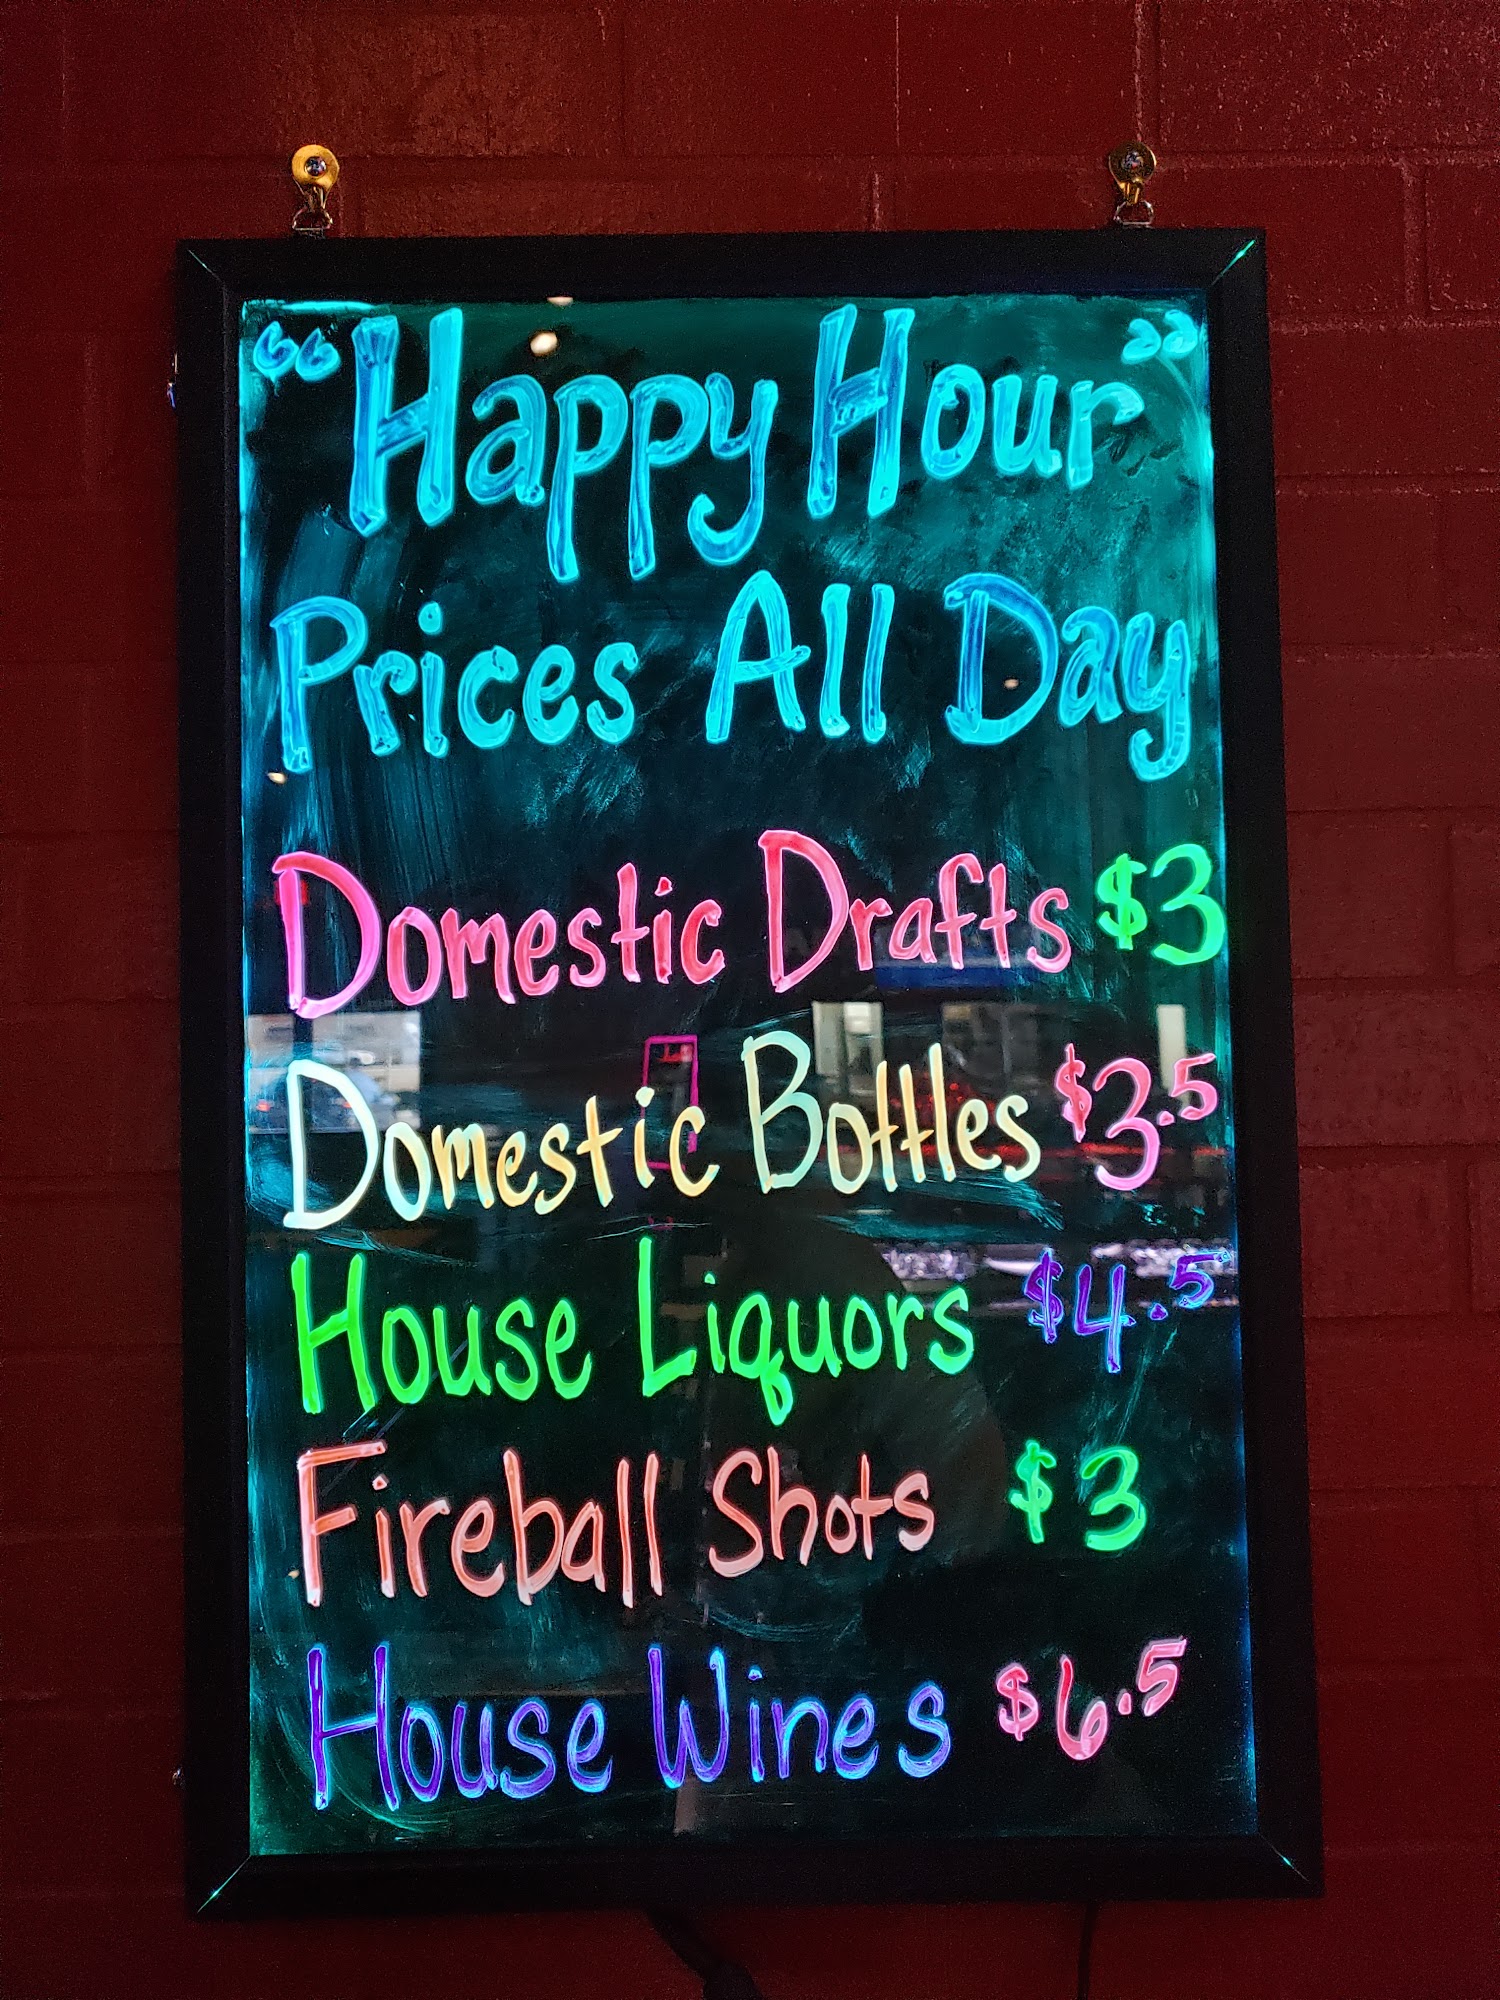 "Happy Hour"
Prices All Day
Domestic Drafts $3
Domestic Bottles $3.5
House Liquors $4.5
Fireball Shots $3
House Wines $6.5